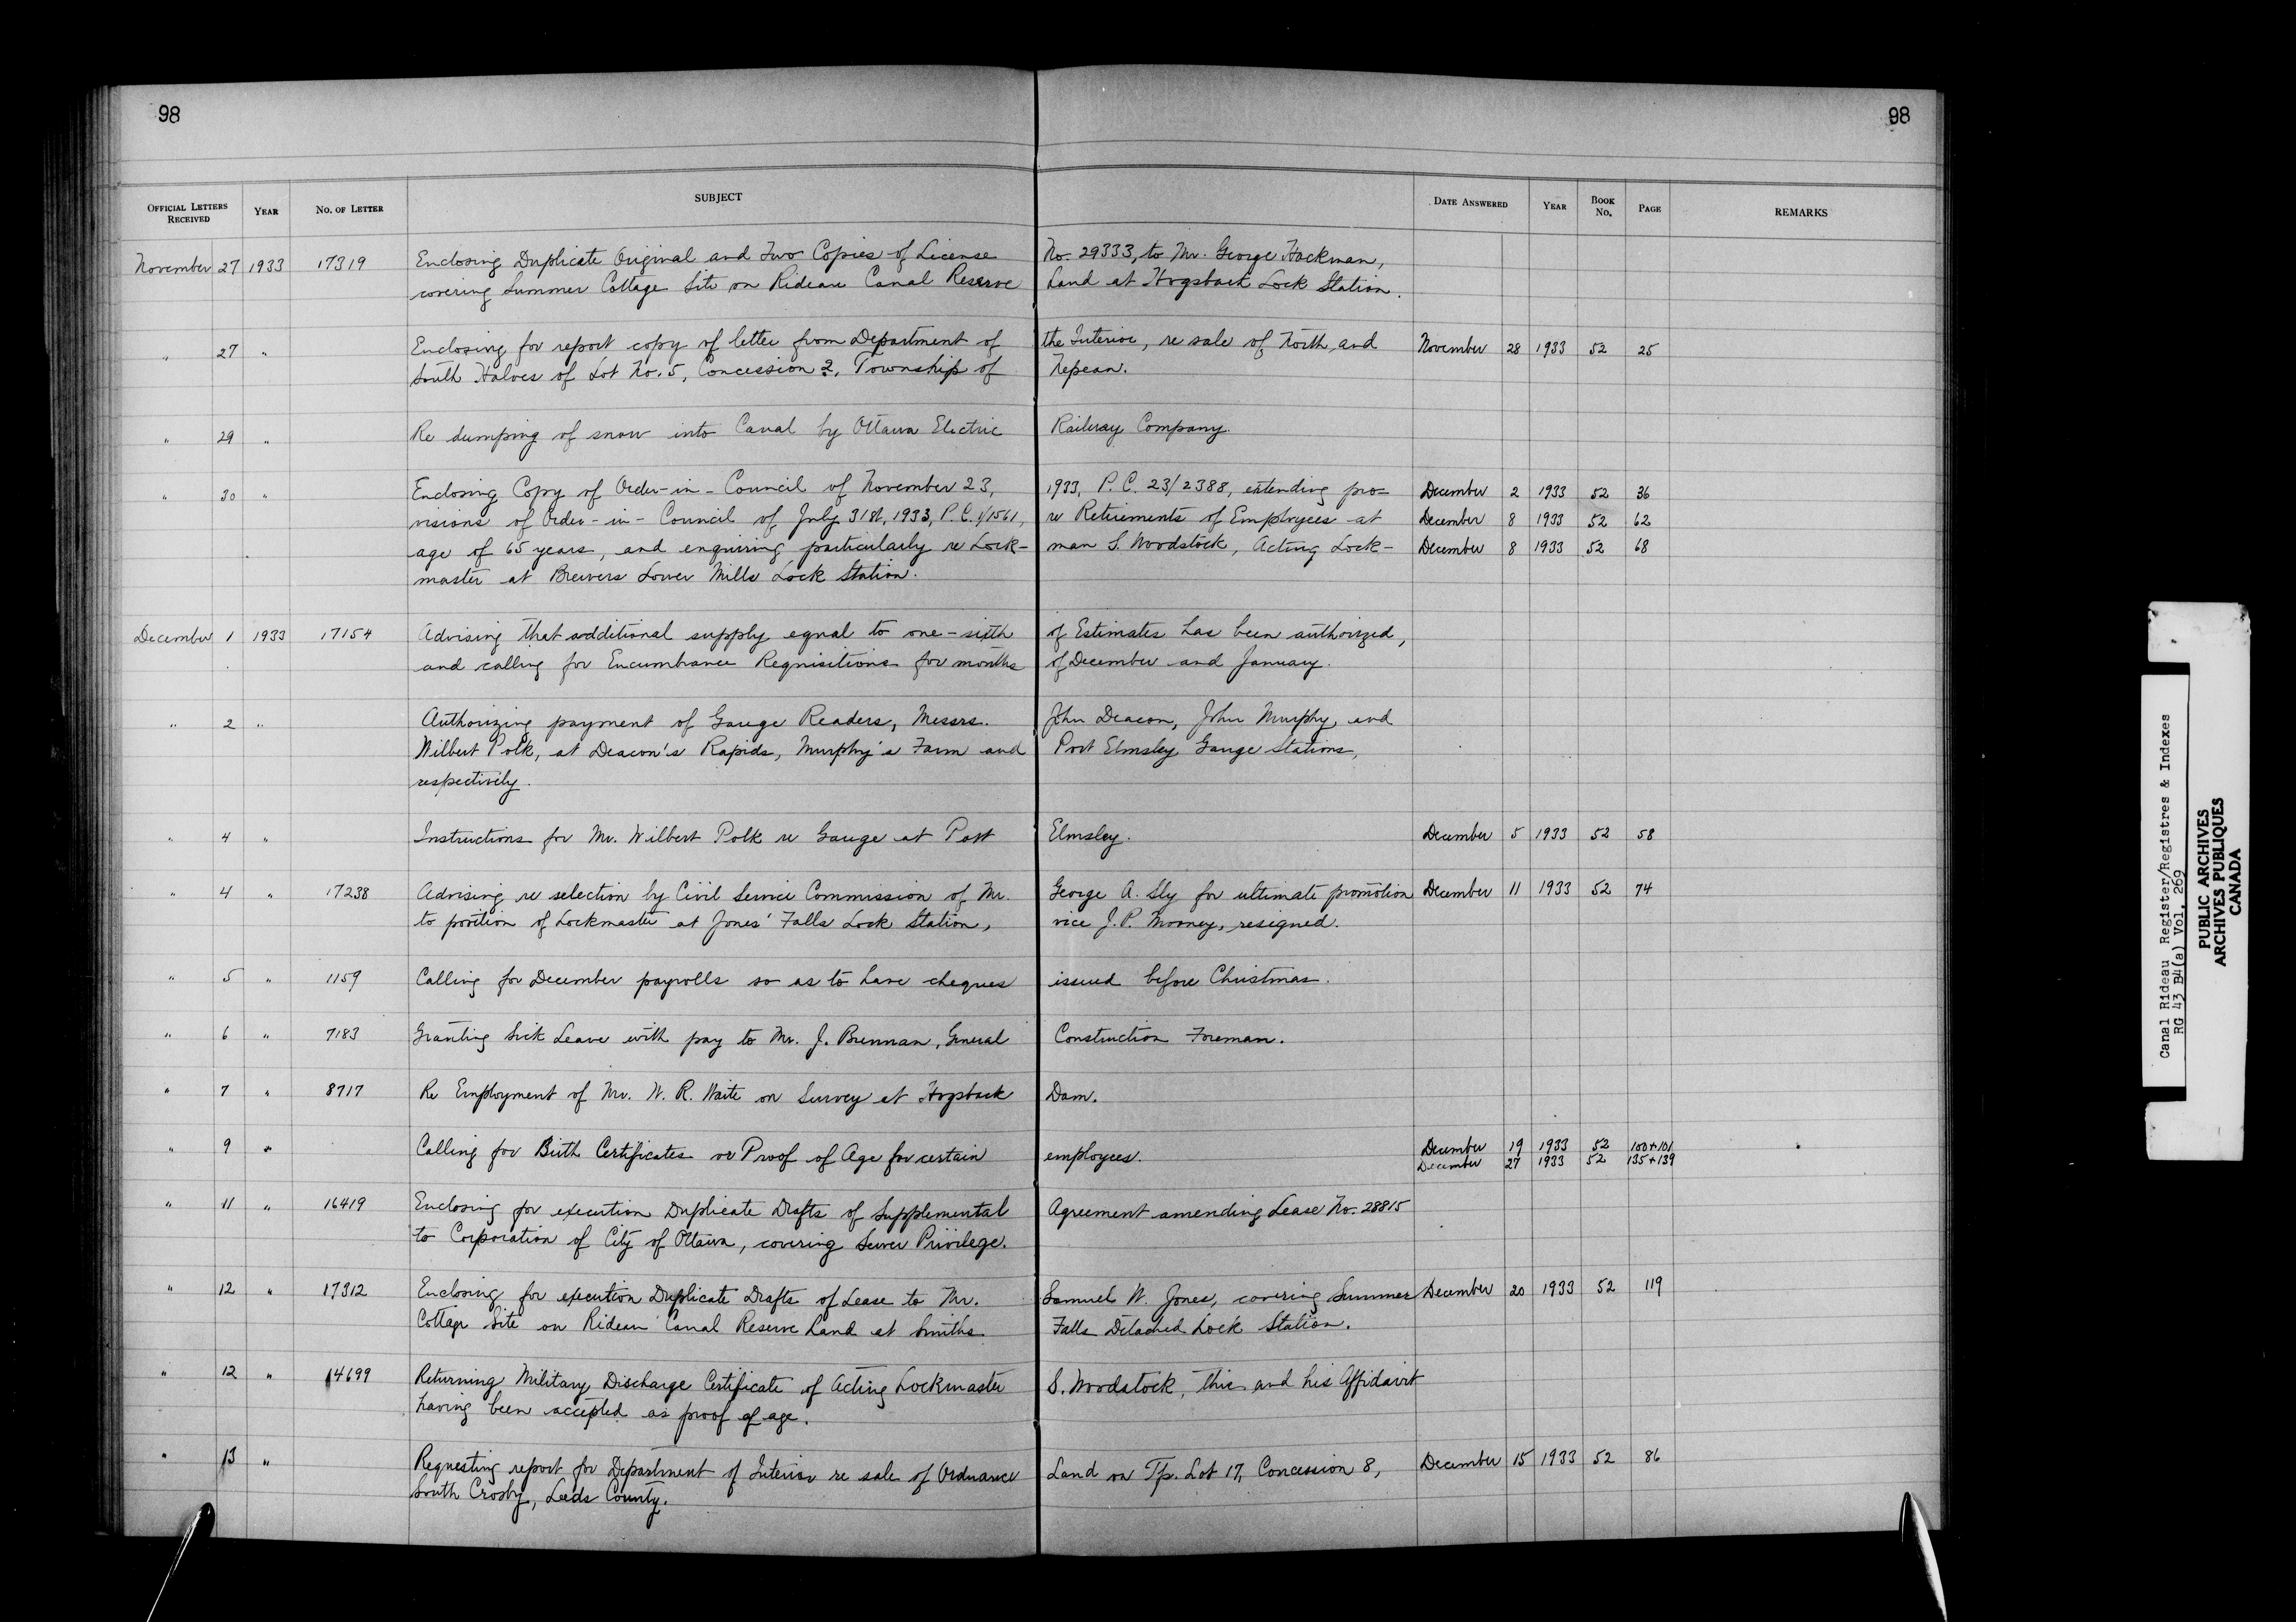 98
98
OFFICIAL LETTERS RECEIVED YEAR NO. OF LETTER SUBJECT DATE ANSWERED YEAR BOOK NO. PAGE REMARKS
November 27 1933 17319 Enclosing Duplicate Original and Two Copies of License No. 29333, to Mr. George Hackman,
covering Summer Cottage Site on Rideau Canal Reserve Land at Hogsback Lock Station.
" 27 " Enclosing for report copy of letter from Department of the Interior, re sale of North and November 28 1933 52 25
South Halves of Lot No. 5, Concession 2, Township of Nepean.
" 29 " Re dumping of snow into Canal by Ottawa Electric Railway Company.
" 30 " Enclosing Copy of Order-in-Council of November 23, 1933, P.C. 23/2388, extending pro- December 2 1933 52 36
visions of Order-in-Council of July 31st, 1933, P.C. 1/1561, re Retirements of Employees at December 8 1933 52 62
age of 65 years, and enquiring particularly re Lock- man S. Woodstock, Acting Lock- December 8 1933 52 68
master at Brewers Lower Mills Lock Station.
December 1 1933 17154 Advising that additional supply equal to one-sixth of Estimates has been authorized,
and calling for Encumbrance Requisitions for months of December and January.
" 2 " Authorizing payment of Gauge Readers, Messrs. John Deacon, John Murphy, and
Wilbert Polk, at Deacon's Rapids, Murphy's Farm and Port Elmsley Gauge Stations,
respectively.
" 4 " Instructions for Mr. Wilbert Polk re Gauge at Port Elmsley. December 5 1933 52 58
" 4 " 17238 Advising re selection by Civil Service Commission of Mr. George A. Sly for ultimate promotion December 11 1933 52 74
to position of Lockmaster at Jones' Falls Lock Station, vice J.P. Mooney, resigned.
" 5 " 1159 Calling for December payrolls so as to have cheques issued before Christmas.
" 6 " 7183 Granting Sick Leave with pay to Mr. J. Brennan, General Construction Foreman.
" 7 " 8717 Re Employment of Mr. W. R. Waite on Survey at Hogsback Dam.
" 9 " Calling for Birth Certificates or Proof of Age for certain employees. December 19 1933 52 100+101
December 27 1933 52 135+139
" 11 " 16419 Enclosing for execution Duplicate Drafts of Supplemental Agreement amending Lease No. 28815
to Corporation of City of Ottawa, covering Sewer Privilege.
" 12 " 17312 Enclosing for execution Duplicate Drafts of Lease to Mr. Samuel W. Jones, covering Summer December 20 1933 52 119
Cottage Site on Rideau Canal Reserve Land at Smiths Falls Detached Lock Station.
" 12 " 14699 Returning Military Discharge Certificate of Acting Lockmaster S. Woodstock, this and his Affidavit
having been accepted as proof of age.
" 13 " Requesting report for Department of Interior re sale of Ordnance Land on Tp. Lot 17, Concession 8, December 15 1933 52 86
South Crosby, Leeds County.
Canal Rideau Register/Registres & Indexes
RG 43 B4(a) Vol. 269
PUBLIC ARCHIVES
ARCHIVES PUBLIQUES
CANADA